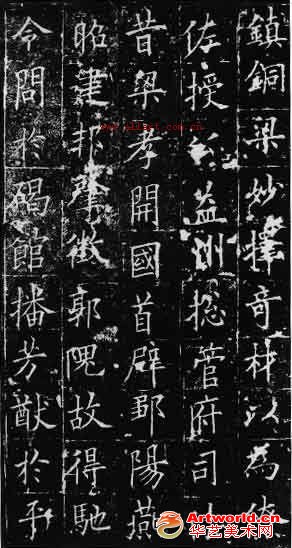 鎮銅梁妙擇奇材以為
佐授益州捴管府司
昔梁孝開國首辟鄒陽燕
昭建邦肇徵郭隗故得馳
令問於碣館播芳猷於平
Artworld.cn
华艺美术网